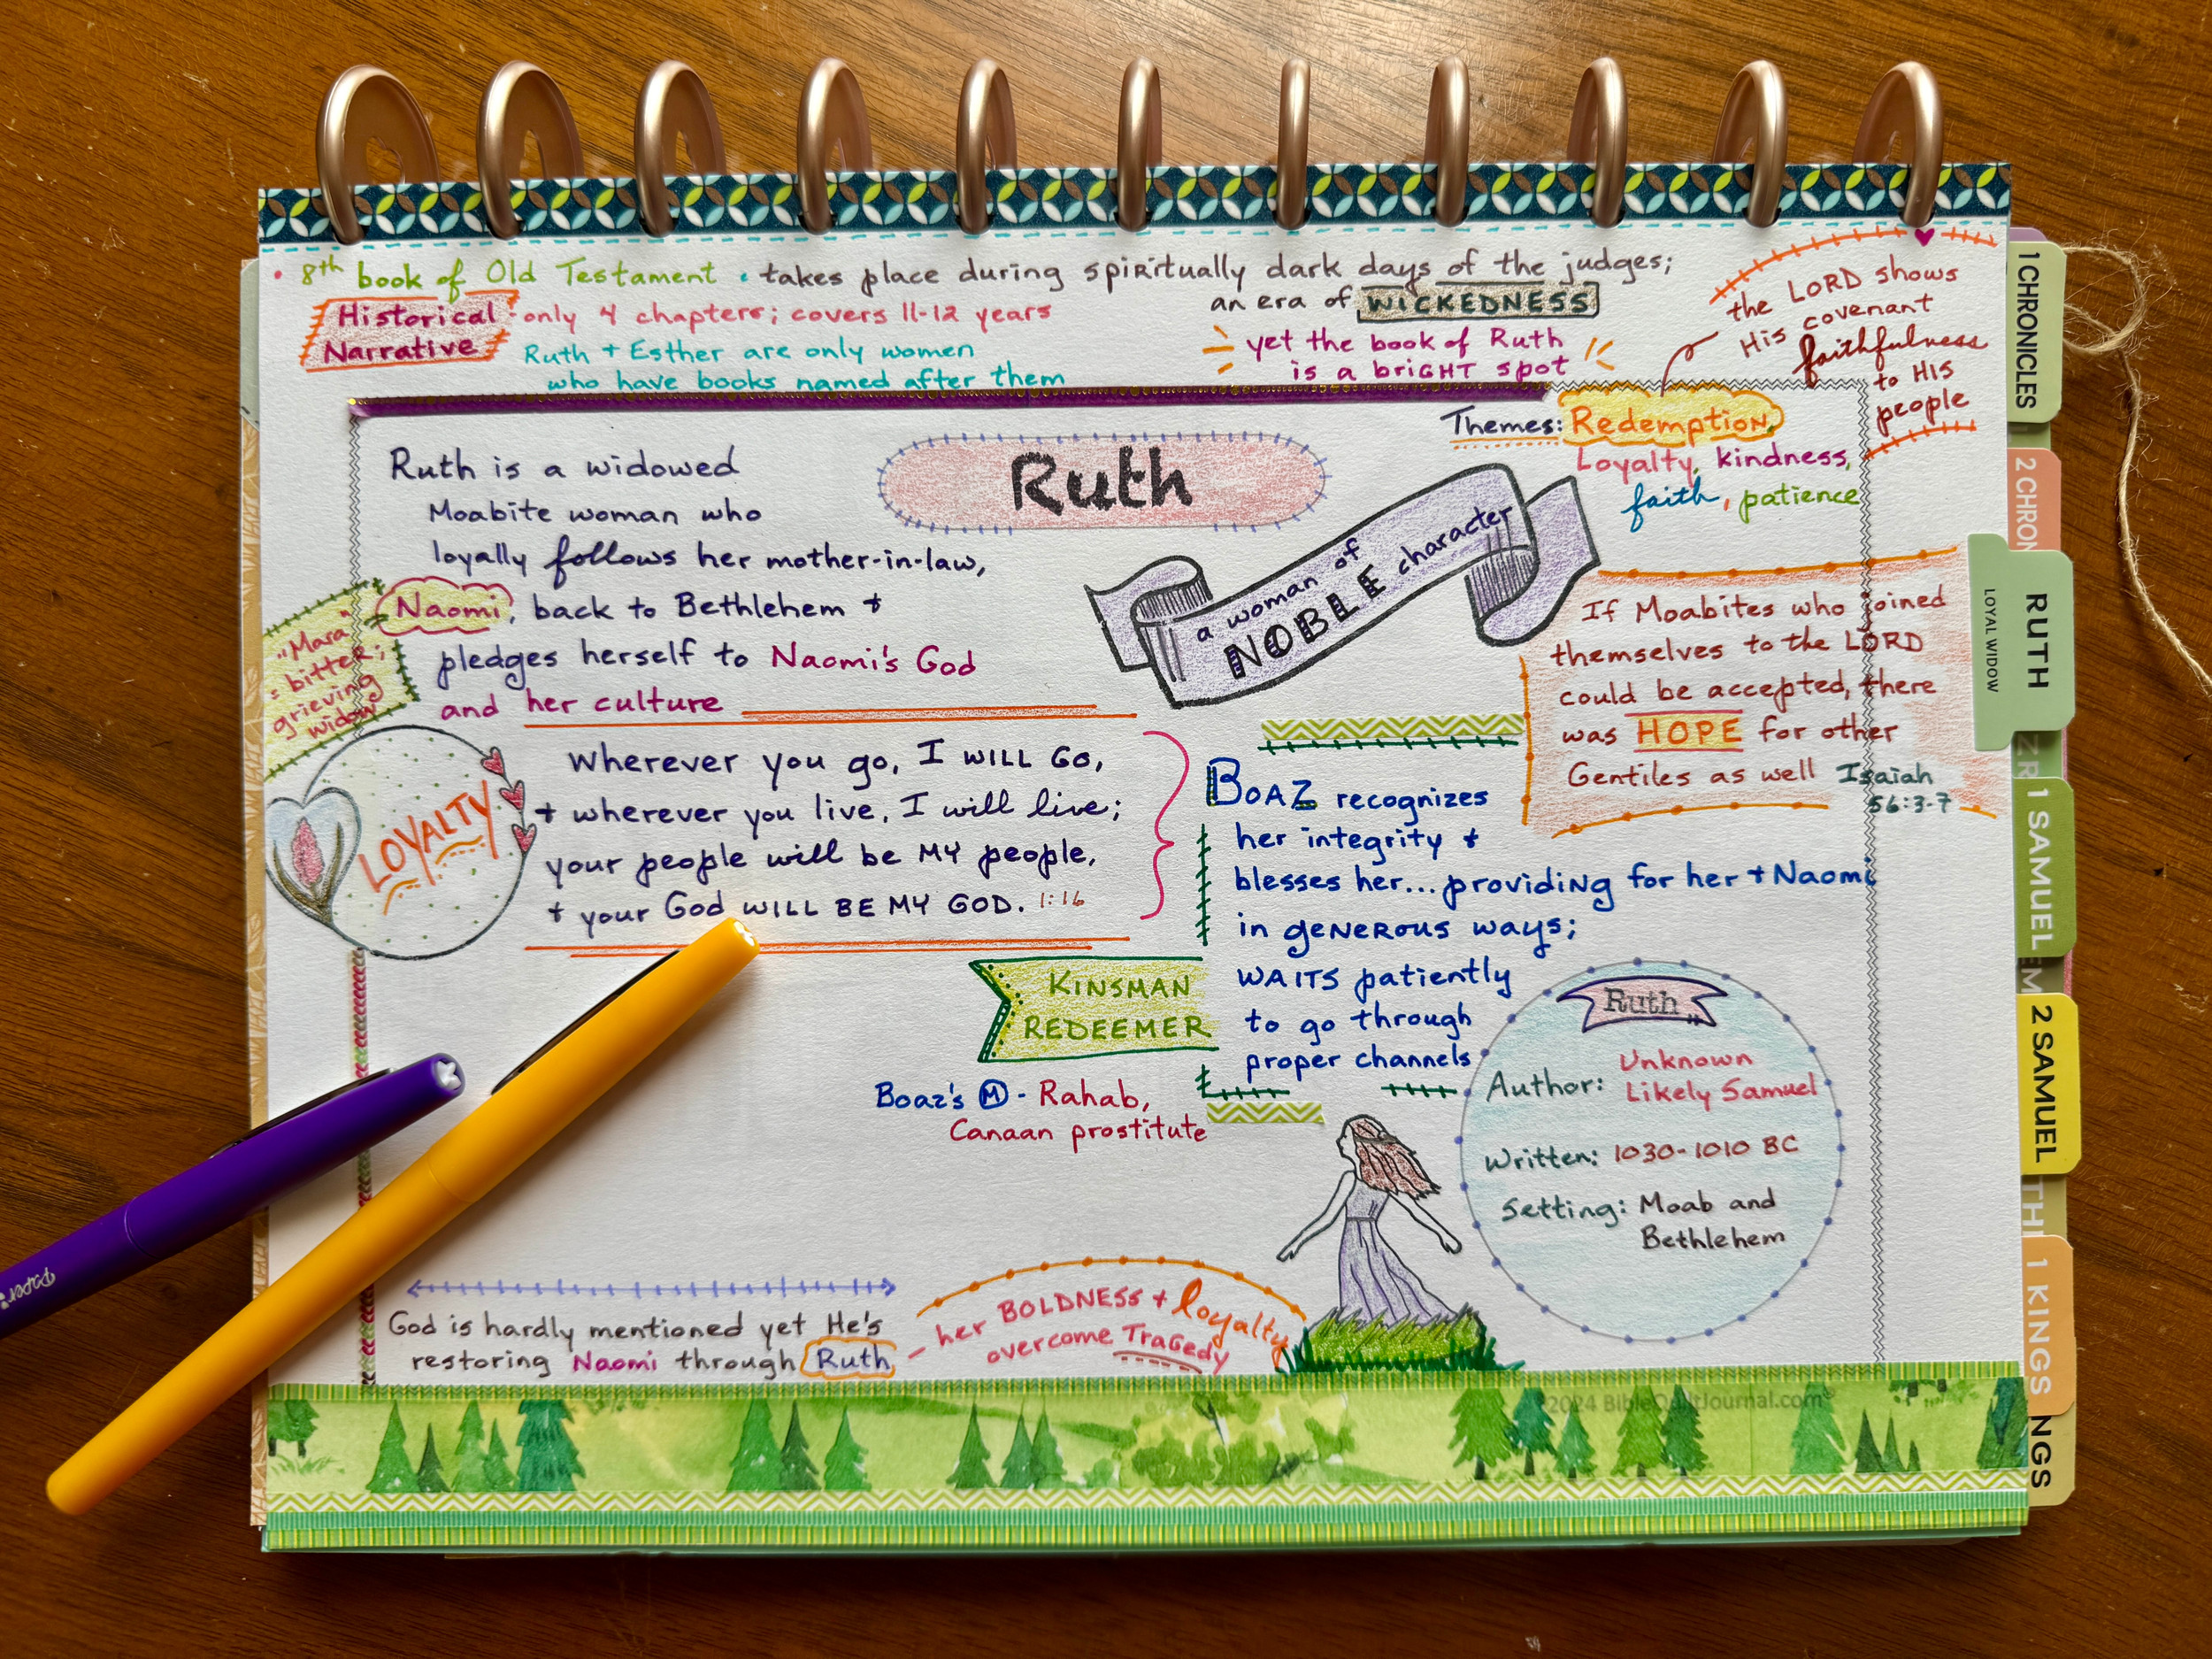 • 8th book of Old Testament • takes place during spiritually dark days of the judges;
an era of WICKEDNESS
Historical
Narrative
• only 4 chapters; covers 11-12 years
Ruth + Esther are only women
who have books named after them
yet the book of Ruth
is a briGHT spot
the LORD shows
His covenant
faithfulness
to His
people
Themes: Redemption,
Loyalty, kindness,
faith, patience
Ruth
a woman of
NOBLE character
Ruth is a widowed
Moabite woman who
loyally follows her mother-in-law,
Naomi, back to Bethlehem +
pledges herself to Naomi's God
and her culture
"Mara"
= bitter;
grieving
widow
LOYALTY
Wherever you go, I WILL GO,
+ wherever you live, I will live;
your people will be MY people,
+ your God WILL BE MY GOD. 1:16
If Moabites who joined
themselves to the LORD
could be accepted, there
was HOPE for other
Gentiles as well Isaiah
56:3-7
BOAZ recognizes
her integrity +
blesses her... providing for her + Naomi
in generous ways;
WAITS patiently
to go through
proper channels
KINSMAN
REDEEMER
Boaz's M - Rahab,
Canaan prostitute
Ruth
Author: Unknown
Likely Samuel
Written: 1030-1010 BC
Setting: Moab and
Bethlehem
God is hardly mentioned yet He's
restoring Naomi through Ruth
- her BOLDNESS + loyalty
overcome TRaGedy
©2024 BibleQuiltJournal.com
1 CHRONICLES
2 CHRON
RUTH
LOYAL WIDOW
ZR
1 SAMUEL
EM
2 SAMUEL
TH
1 KINGS
NGS
Paper